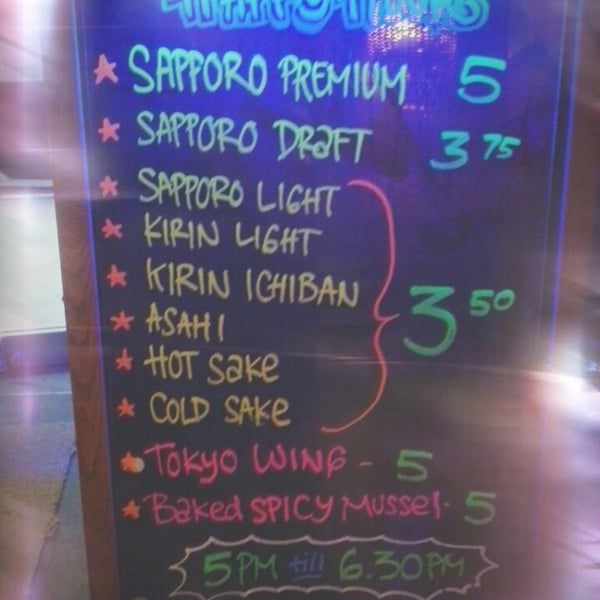 ★ SAPPORO PREMIUM 5
★ SAPPORO DRAFT 3 75
★ SAPPORO LIGHT
★ KIRIN LIGHT
★ KIRIN ICHIBAN
3 50
★ ASAHI
★ HOT SAKE
★ COLD SAKE
★ TOKYO WING - 5
★ Baked SPICY Mussel - 5
5PM till 6.30PM